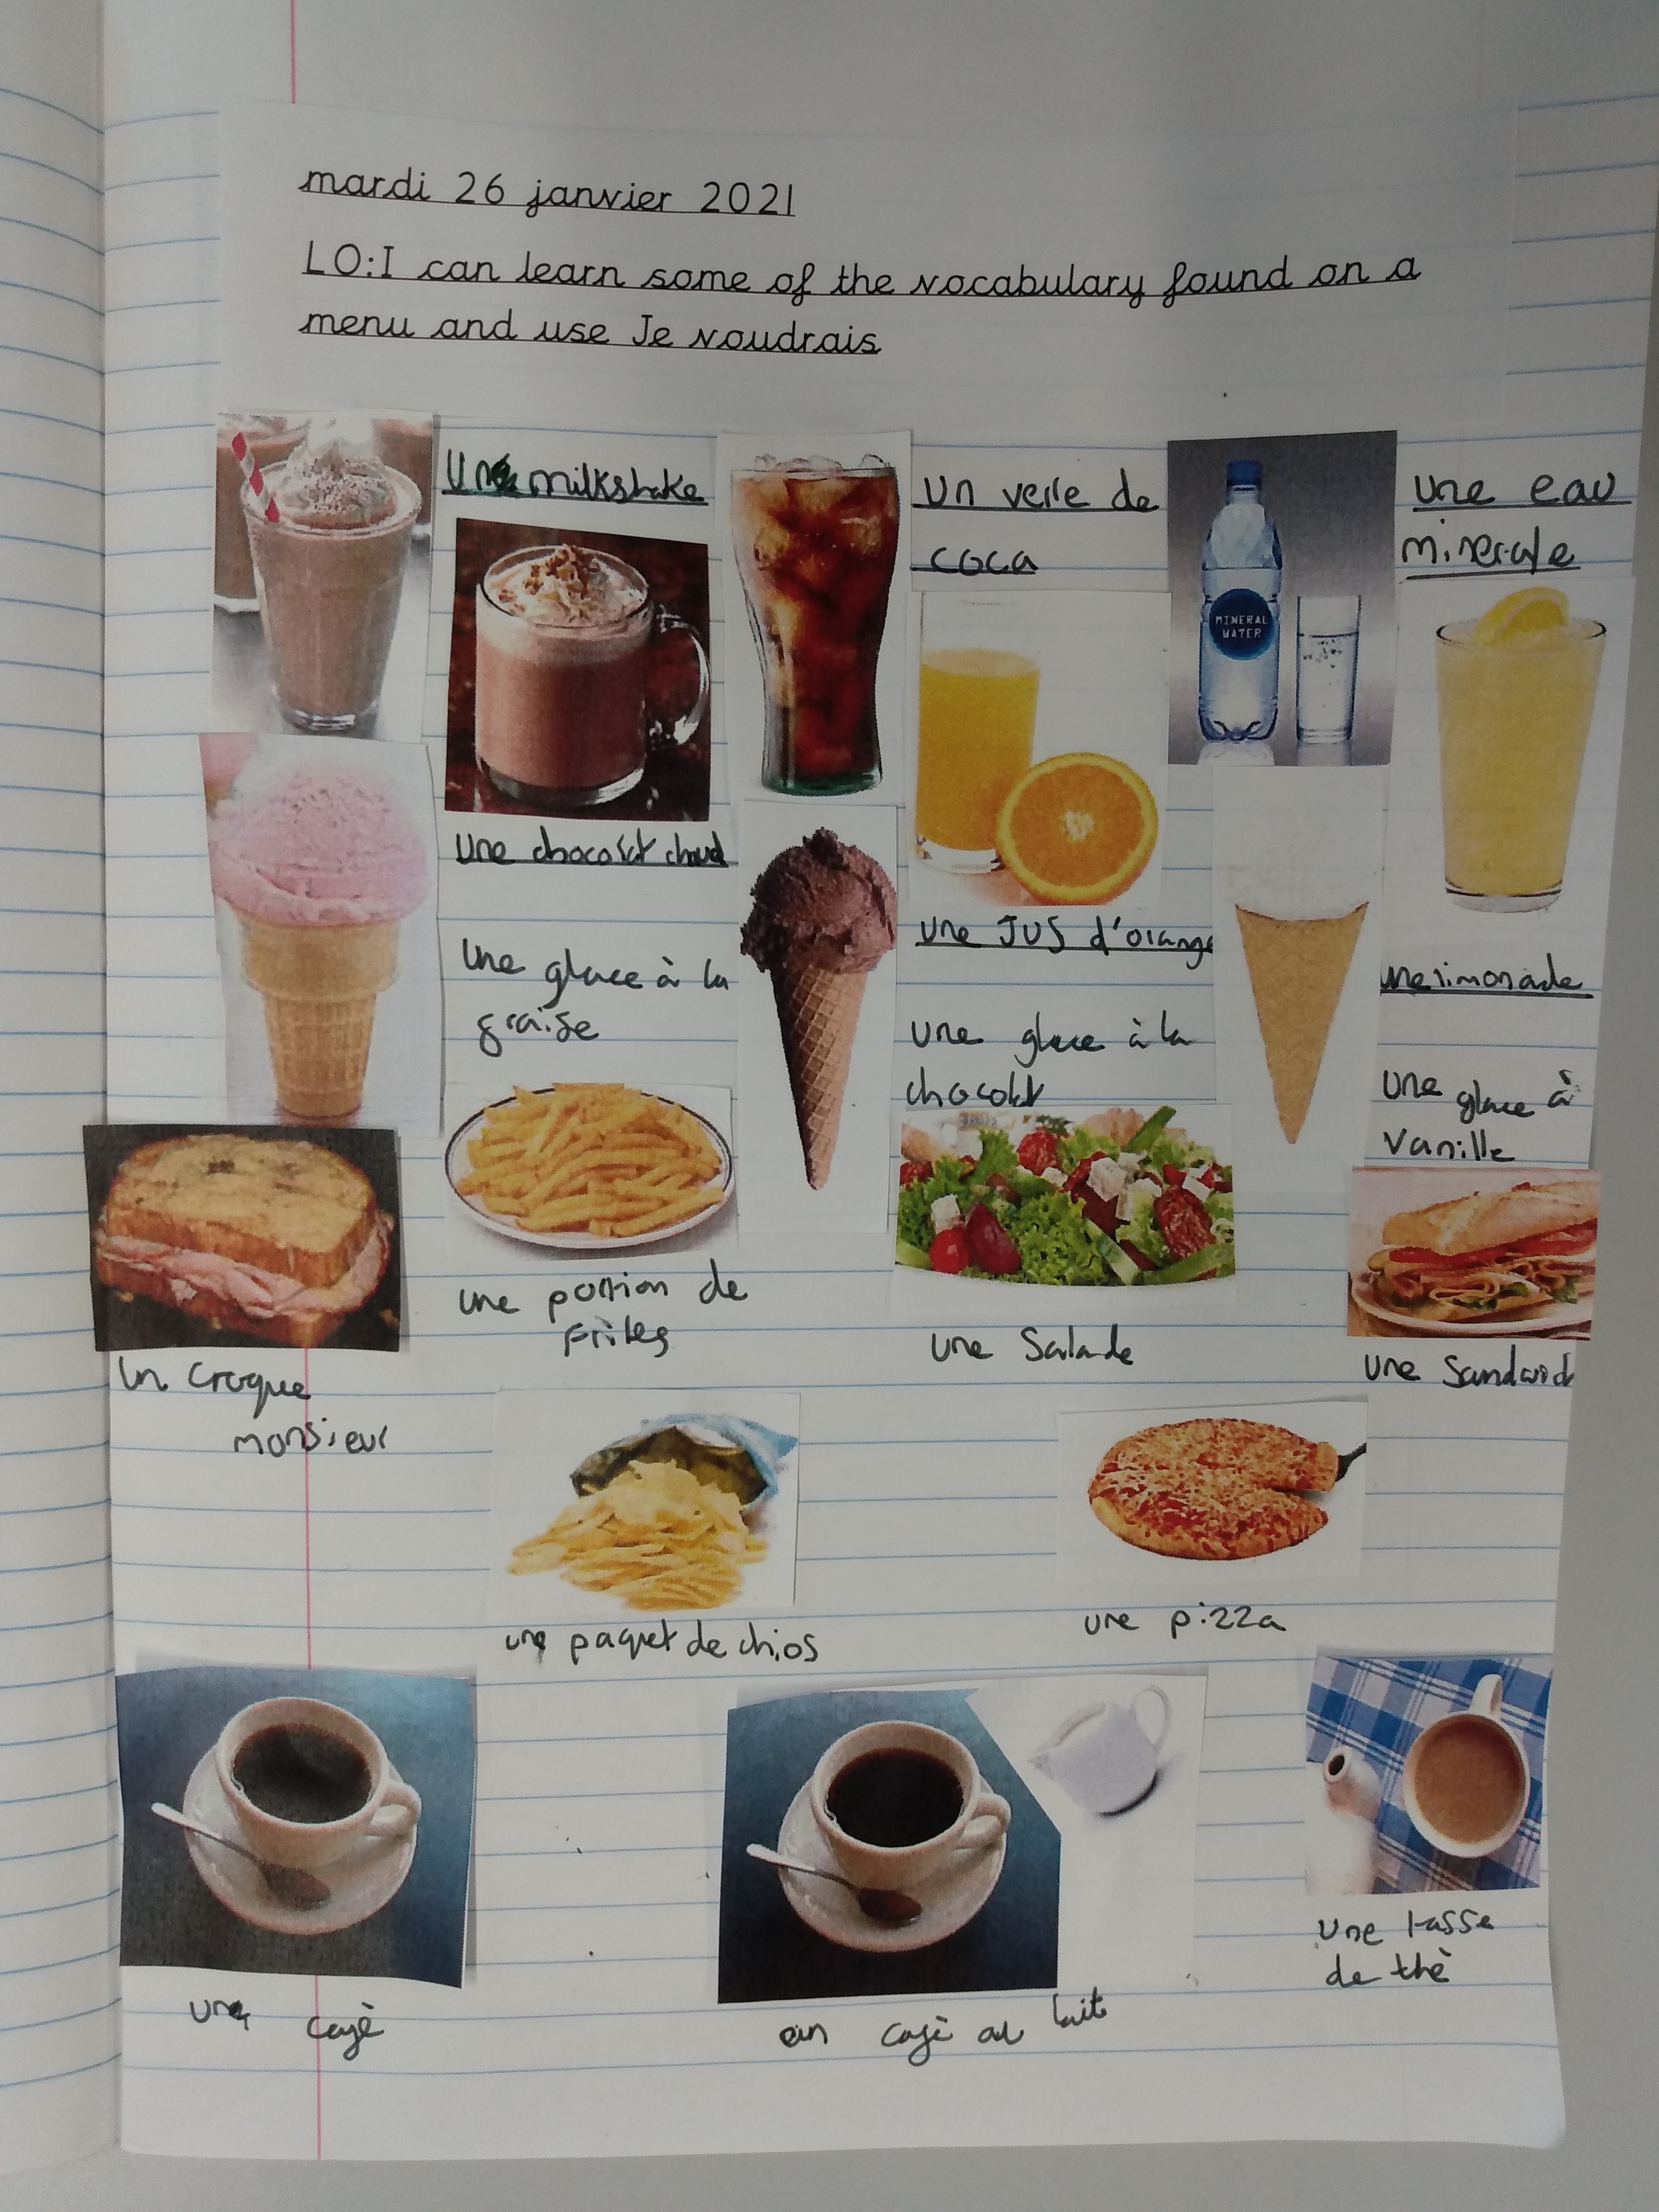 mardi 26 janvier 2021
LO: I can learn some of the vocabulary found on a
menu and use Je voudrais
Un milkshake
un verre de
coca
une eau
minerale
MINERAL
WATER
une chocolat chaud
une JUS d'orange
une limonade
une glace à la
fraise
une glace à la
chocolat
une glace à
vanille
un croque
monsieur
une portion de
frites
une Salade
une Sandwich
un paquet de chips
une pizza
un cafè
un cafè au lait
une tasse
de thè